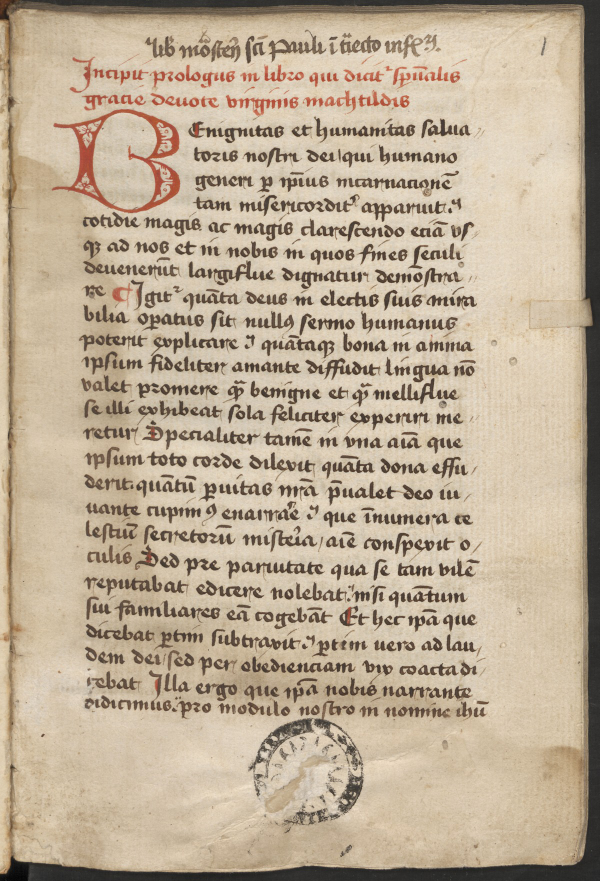 lib' mo'steh sci Pauli ī t'iecto inf
1
Incipit prologus in libro qui dicit' sp'ualis
gracie deuote virginis machtildis
BEnignitas et humanitas salua
toris nostri dei qui humano
generi p ip'ius incarnacionē
tam misericordit' apparuit
cotidie magis ac magis clarescendo eciā vs
qz ad nos et in nobis in quos fines seculi
deuenerūt largiflue dignatur demōstra
re Igit' quāta deus in electis suis mira
bilia opatus sit null9 sermo humanus
poterit explicare quātaqz bona in amma
ipsum fideliter amante diffudit lingua nō
valet promere q̄ benigne et q̄ melliflue
se illi exhibeat sola feliciter experiri me
retur Specialiter tamē in vna aīa que
ipsum toto corde dilexit quāta dona effu
derit quātū puitas nr̄a p̄ualet deo iu
uante cupim9 enarrare que īnumera ce
lestiū secretorū mist'ia aīe conspexit o
culis Sed pre paruitate qua se tam vilē
reputabat edicere nolebat nisi quantum
sui familiares eā cogebāt Et hec ip̄a que
dicebat ptim subtraxit ptim uero ad lau
dem dei sed per obedienciam vix coacta di
cebat Illa ergo que ip̄a nobis narrante
didicimus pro modulo nostro in nomine ihū